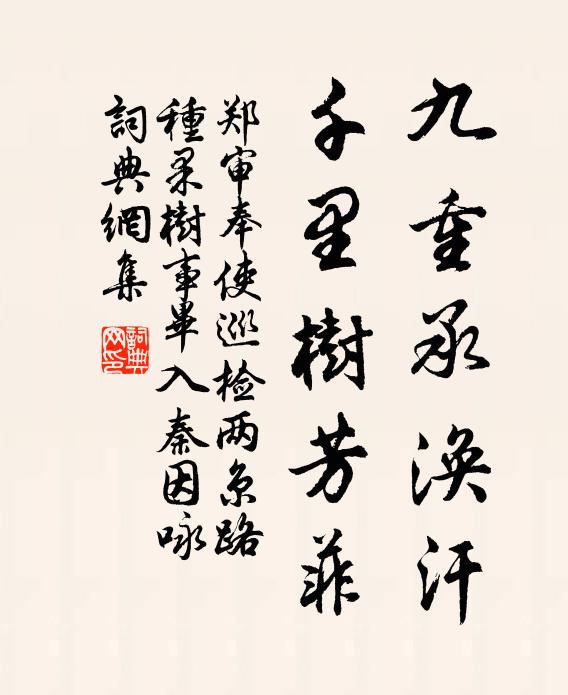 九重承渙汗
千里樹芳菲
郑审奉使巡检两京路
種果樹事畢入秦因咏
詞典網集
詞典網印